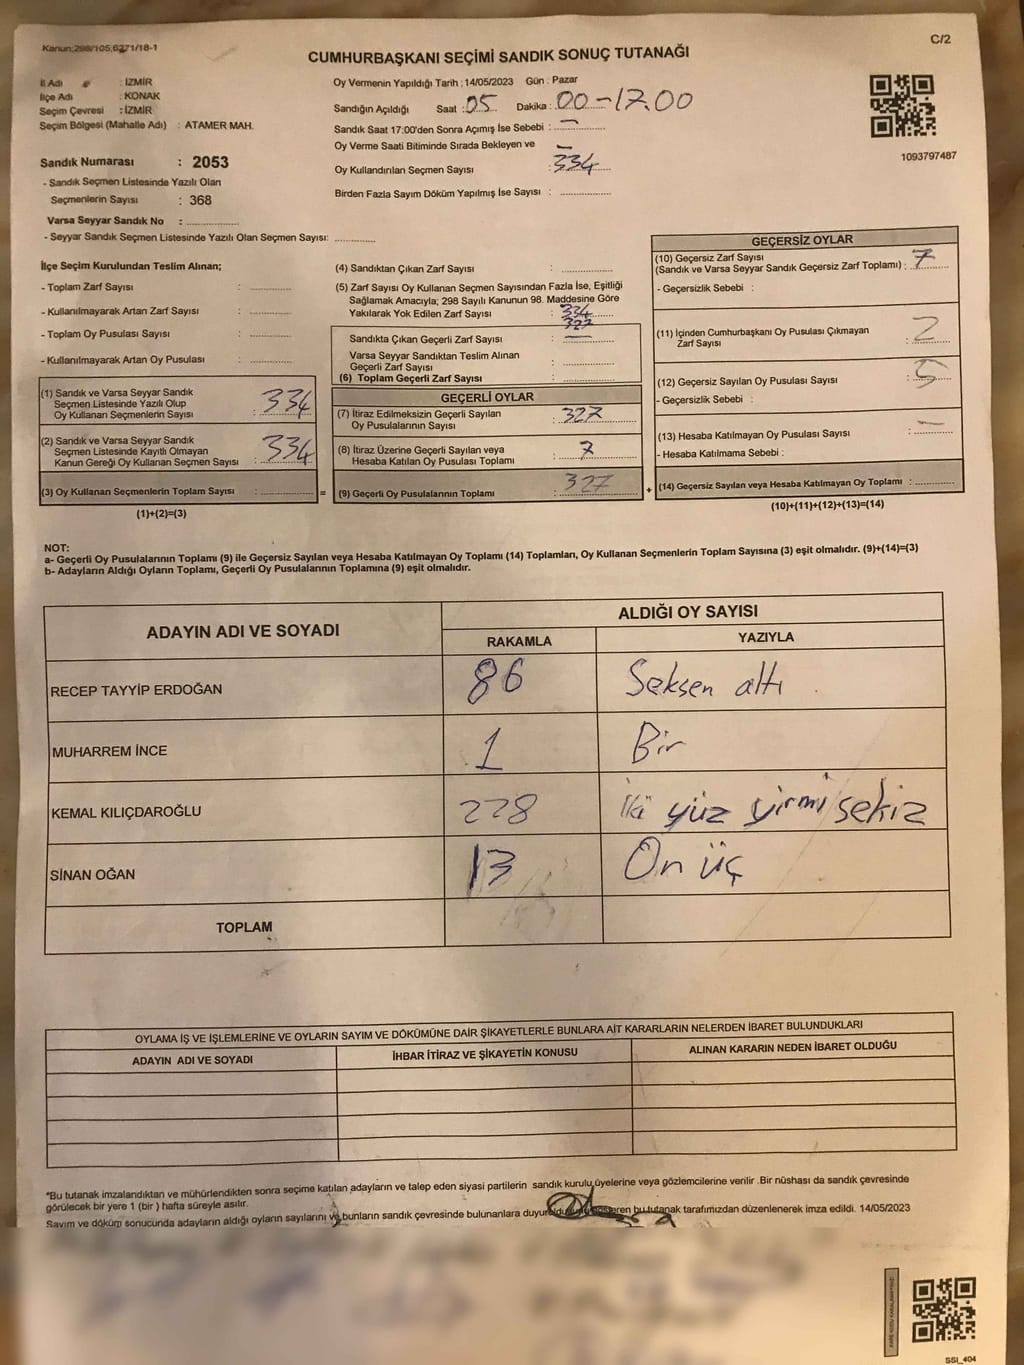 Kanun:298/105,6271/18-1
C/2
CUMHURBAŞKANI SEÇİMİ SANDIK SONUÇ TUTANAĞI
İl Adı : İZMİR
İlçe Adı : KONAK
Seçim Çevresi : İZMİR
Seçim Bölgesi (Mahalle Adı) : ATAMER MAH.
Sandık Numarası : 2053
- Sandık Seçmen Listesinde Yazılı Olan
Seçmenlerin Sayısı : 368
Varsa Seyyar Sandık No :
- Seyyar Sandık Seçmen Listesinde Yazılı Olan Seçmen Sayısı:
Oy Vermenin Yapıldığı Tarih : 14/05/2023 Gün : Pazar
Sandığın Açıldığı Saat : 05 Dakika : 00-17.00
Sandık Saat 17:00'den Sonra Açımış İse Sebebi : —
Oy Verme Saati Bitiminde Sırada Bekleyen ve —
Oy Kullandırılan Seçmen Sayısı : 334
Birden Fazla Sayım Döküm Yapılmış İse Sayısı :
1093797487
İlçe Seçim Kurulundan Teslim Alınan;
- Toplam Zarf Sayısı :
- Kullanılmayarak Artan Zarf Sayısı :
- Toplam Oy Pusulası Sayısı :
- Kullanılmayarak Artan Oy Pusulası :
(1) Sandık ve Varsa Seyyar Sandık
Seçmen Listesinde Yazılı Olup
Oy Kullanan Seçmenlerin Sayısı : 334
(2) Sandık ve Varsa Seyyar Sandık
Seçmen Listesinde Kayıtlı Olmayan
Kanun Gereği Oy Kullanan Seçmen Sayısı : 334
(3) Oy Kullanan Seçmenlerin Toplam Sayısı : =
(1)+(2)=(3)
(4) Sandıktan Çıkan Zarf Sayısı :
(5) Zarf Sayısı Oy Kullanan Seçmen Sayısından Fazla İse, Eşitliği
Sağlamak Amacıyla; 298 Sayılı Kanunun 98. Maddesine Göre
Yakılarak Yok Edilen Zarf Sayısı : 334
327
Sandıkta Çıkan Geçerli Zarf Sayısı : —
Varsa Seyyar Sandıktan Teslim Alınan
Geçerli Zarf Sayısı :
(6) Toplam Geçerli Zarf Sayısı :
GEÇERLİ OYLAR
(7) İtiraz Edilmeksizin Geçerli Sayılan
Oy Pusulalarının Sayısı : 327
(8) İtiraz Üzerine Geçerli Sayılan veya
Hesaba Katılan Oy Pusulası Toplamı : 7
(9) Geçerli Oy Pusulalarının Toplamı : 327 +
GEÇERSİZ OYLAR
(10) Geçersiz Zarf Sayısı
(Sandık ve Varsa Seyyar Sandık Geçersiz Zarf Toplamı) : 7
- Geçersizlik Sebebi :
(11) İçinden Cumhurbaşkanı Oy Pusulası Çıkmayan
Zarf Sayısı : 2
(12) Geçersiz Sayılan Oy Pusulası Sayısı : 5
- Geçersizlik Sebebi :
(13) Hesaba Katılmayan Oy Pusulası Sayısı : —
- Hesaba Katılmama Sebebi :
(14) Geçersiz Sayılan veya Hesaba Katılmayan Oy Toplamı :
(10)+(11)+(12)+(13)=(14)
NOT:
a- Geçerli Oy Pusulalarının Toplamı (9) ile Geçersiz Sayılan veya Hesaba Katılmayan Oy Toplamı (14) Toplamları, Oy Kullanan Seçmenlerin Toplam Sayısına (3) eşit olmalıdır. (9)+(14)=(3)
b- Adayların Aldığı Oyların Toplamı, Geçerli Oy Pusulalarının Toplamına (9) eşit olmalıdır.
ADAYIN ADI VE SOYADI
ALDIĞI OY SAYISI
RAKAMLA YAZIYLA
RECEP TAYYİP ERDOĞAN 86 Seksen altı
MUHARREM İNCE 1 Bir
KEMAL KILIÇDAROĞLU 228 İki yüz yirmi sekiz
SİNAN OĞAN 13 On üç
TOPLAM
OYLAMA İŞ VE İŞLEMLERİNE VE OYLARIN SAYIM VE DÖKÜMÜNE DAİR ŞİKAYETLERLE BUNLARA AİT KARARLARIN NELERDEN İBARET BULUNDUKLARI
ADAYIN ADI VE SOYADI İHBAR İTİRAZ VE ŞİKAYETİN KONUSU ALINAN KARARIN NEDEN İBARET OLDUĞU
*Bu tutanak imzalandıktan ve mühürlendikten sonra seçime katılan adayların ve talep eden siyasi partilerin sandık kurulu üyelerine veya gözlemcilerine verilir .Bir nüshası da sandık çevresinde
görülecek bir yere 1 (bir ) hafta süreyle asılır.
Sayım ve döküm sonucunda adayların aldığı oyların sayılarını ve bunların sandık çevresinde bulunanlara bu tutanak tarafımızdan düzenlenerek imza edildi. 14/05/2023
SSI_404